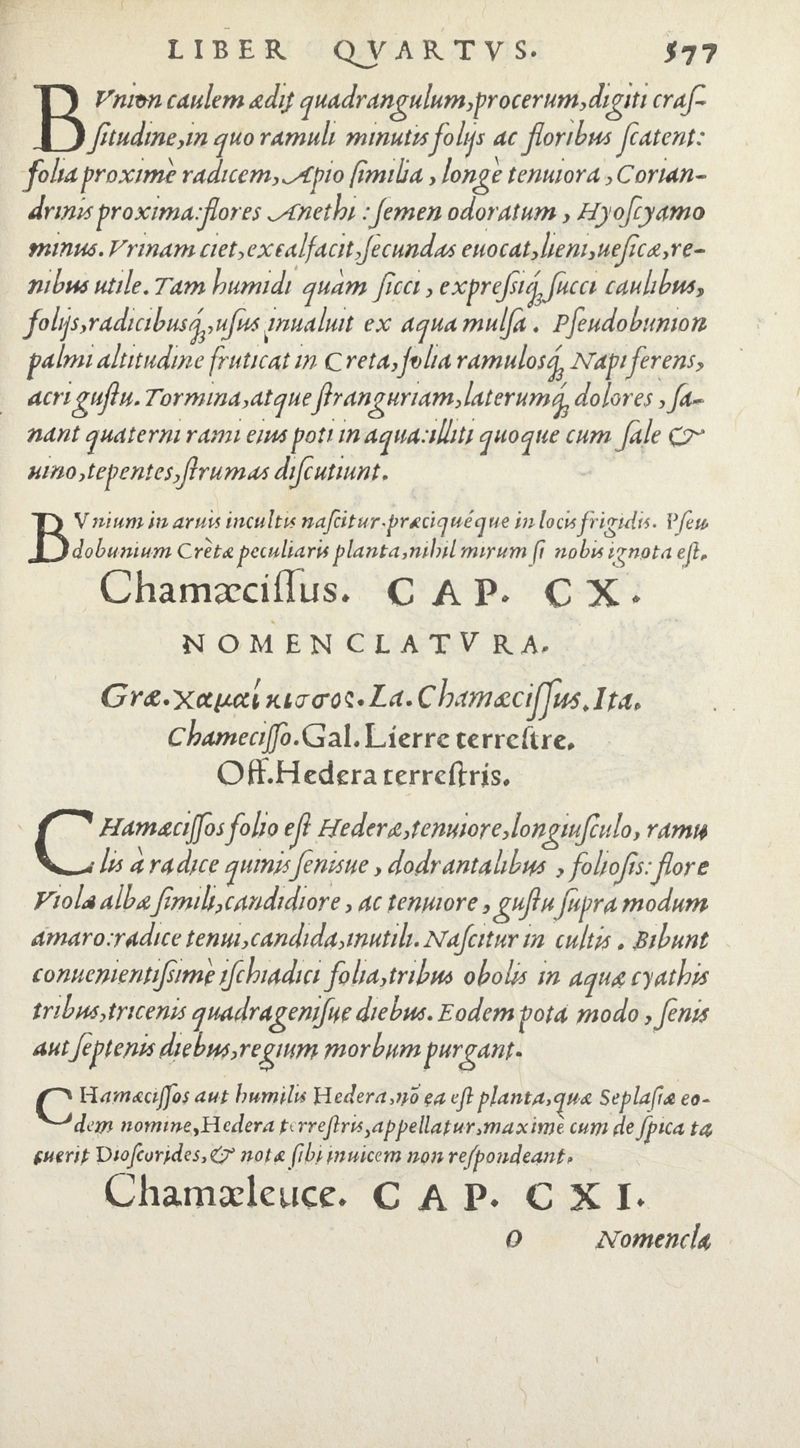 LIBER QVARTVS. 577
BVnion caulem ædit quadrangulum,procerum,digiti craſ-
ſitudine,in quo ramuli minutis folijs ac floribus ſcatent:
folia proximè radicem,Apio ſimilia, longè tenuiora, Corian-
drinis proxima:flores Anethi : ſemen odoratum, Hyoſcyamo
minus. Vrinam ciet,excalfacit,ſecundas euocat,lieni,ueſicæ,re-
nibus utile. Tam humidi quàm ſicci, expreſsiq́; ſucci caulibus,
folijs,radicibusq́;,uſus inualuit ex aqua mulſa. Pſeudobunion
palmi altitudine fruticat in Creta,folia ramulosq́; Napi ferens,
acri guſtu. Tormina,atque ſtranguriam,laterumq́; dolores, ſa-
nant quaterni rami eius poti in aqua:illiti quoque cum ſale &
uino,tepentes,ſtrumas diſcutiunt.
BVnium in aruis incultis naſcitur.præciquéque in locis frigidis. Pſeu
dobunium Cretæ peculiaris planta,nihil mirum ſi nobis ignota eſt.
Chamæciſſus. CAP. CX.
NOMENCLATVRA.
Græ.χαμαίκισσος. La. Chamæciſſus. Ita.
Chameciſſo. Gal. Lierre terreſtre.
Off. Hedera terreſtris.
CHamæciſſos folio eſt Hederæ,tenuiore,longiuſculo, ramu
lis à radice quinis ſenisue, dodrantalibus, folioſis: flore
Violæ albæ ſimili,candidiore, ac tenuiore, guſtu ſupra modum
amaro:radice tenui,candida,inutili. Naſcitur in cultis. Bibunt
conuenientiſsimè iſchiadici folia,tribus obolis in aquæ cyathis
tribus,tricenis quadragenisue diebus. Eodem pota modo, ſenis
aut ſeptenis diebus,regium morbum purgant.
CHamæciſſos aut humilis Hedera,nō ea eſt planta,quæ Seplaſiæ eo-
dem nomine,Hedera terreſtris,appellatur,maximè cum de ſpica ta
cuerit Dioſcorides,& notæ ſibi inuicem non reſpondeant.
Chamæleuce. CAP. CXI.
O Nomencla